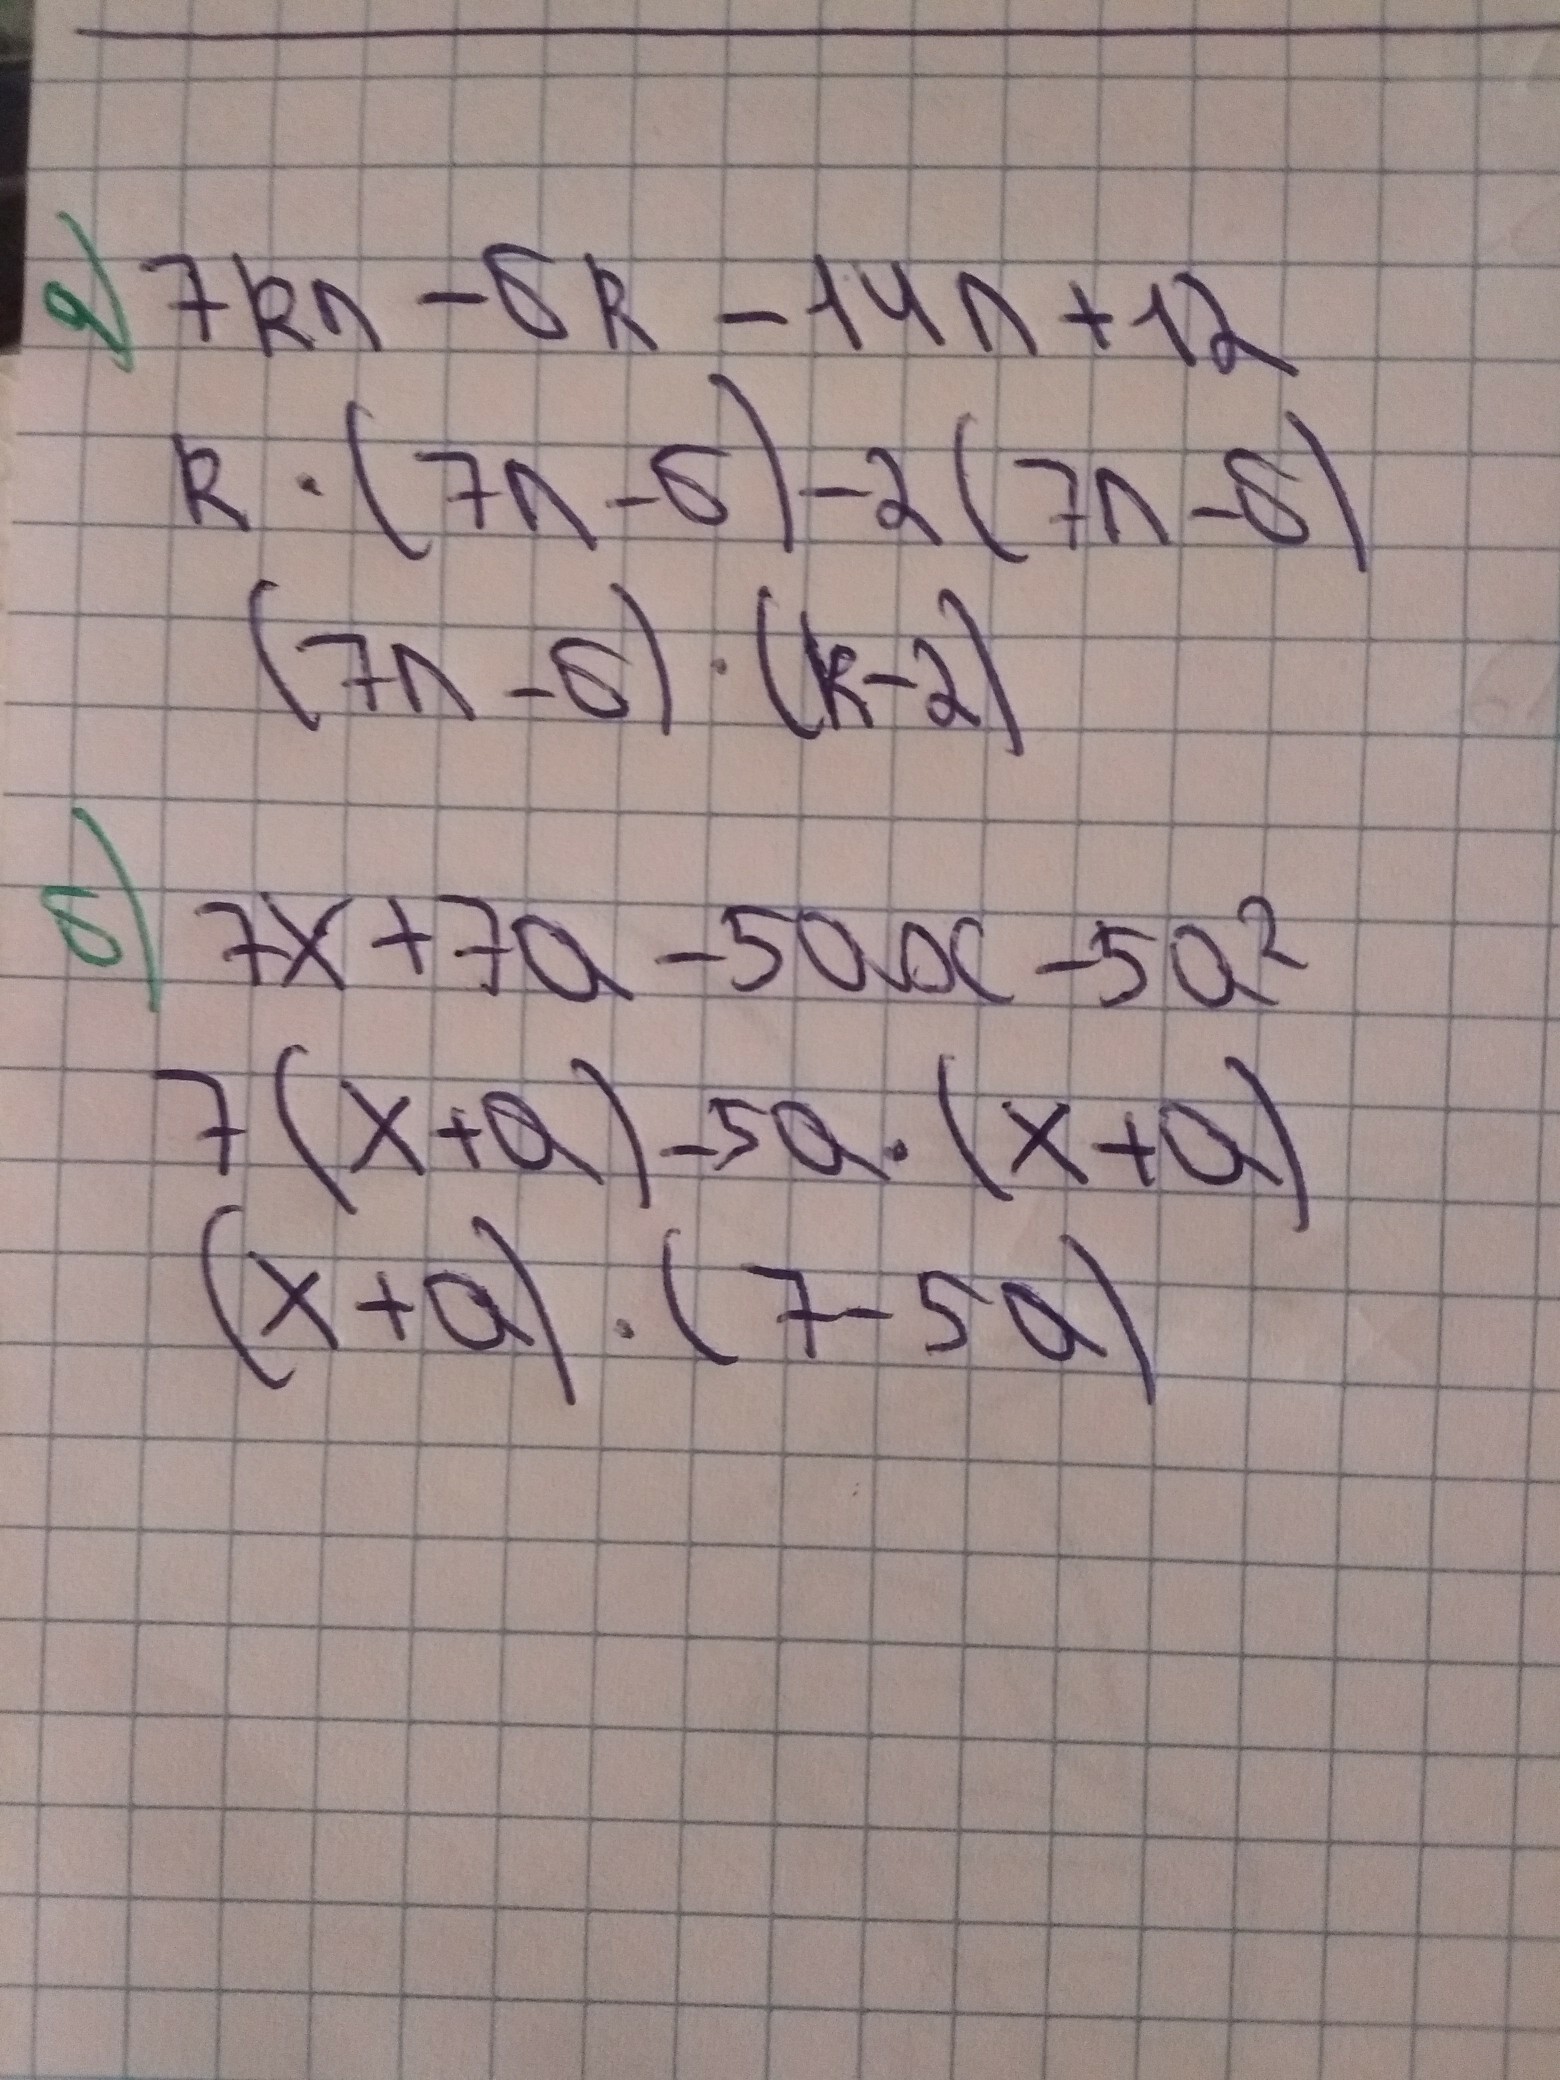 а) 7kn - 6k - 14n + 12
k · (7n - 6) - 2 (7n - 6)
(7n - 6) · (k - 2)
б) 7x + 7a - 5ax - 5a²
7 (x + a) - 5a · (x + a)
(x + a) · (7 - 5a)